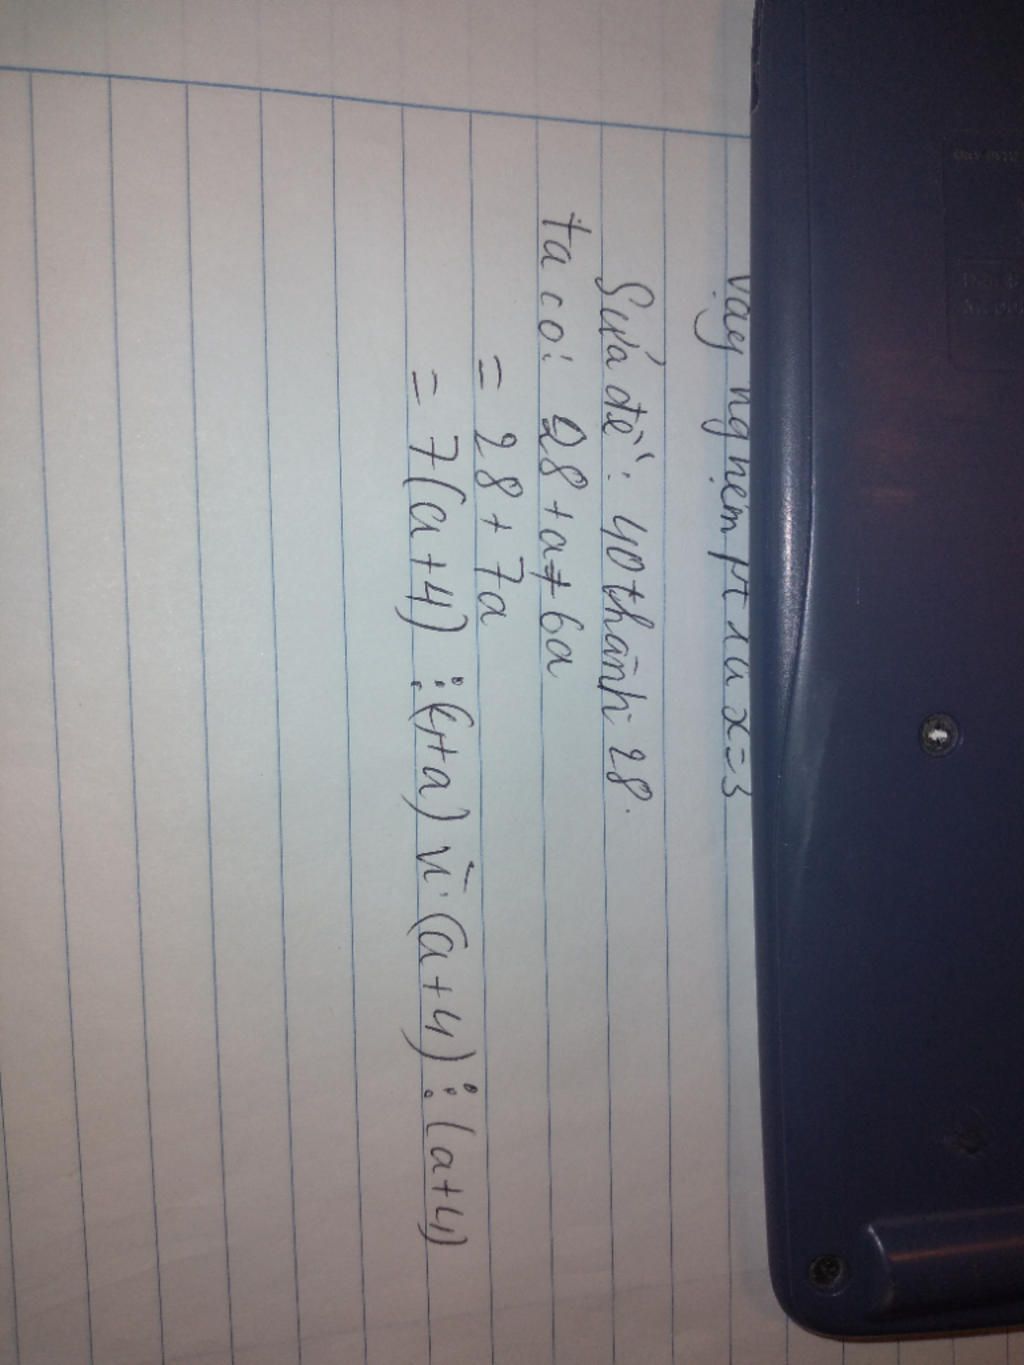 Vậy nghiệm pt là x=3
Sửa đề: 40 thành 28.
ta có: 28+a+6a
= 28+7a
= 7(a+4) ⋮ (4+a) vì (a+4) ⋮ (a+4)